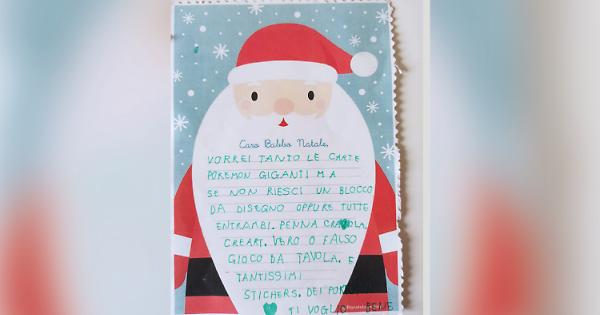 Caro Babbo Natale,
VORREI TANTO LE CARTE
POKEMON GIGANTI MA
SE NON RIESCI UN BLOCCO
DA DISEGNO OPPURE TUTTE
ENTRAMBI. PENNA
CREART. VERO O FALSO
GIOCO DA TAVOLA. E
TANTISSIMI
STICHERS. DEI
TI VOGLIO BENE